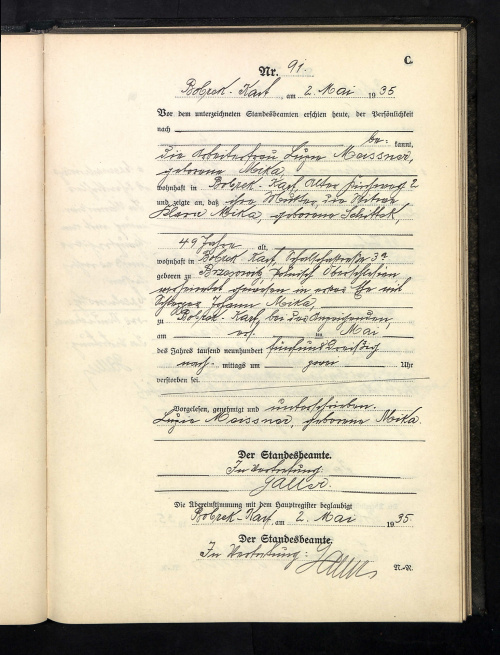 C.
Nr. 91.
Bobrek-Karf, am 2. Mai 1935
Vor dem unterzeichneten Standesbeamten erschien heute, der Persönlichkeit
nach
be= kannt,
die Arbeiterfrau Luzie Maissner,
geborene Mika,
wohnhaft in Bobrek-Karf, 2
und zeigte an, daß ihre Mutter, die Witwe
Klara Mika, geborene
49 Jahre alt,
wohnhaft in Bobrek-Karf, 3a
geboren zu Oberschlesien
verheiratet gewesen in erster Ehe mit
Johann Mika,
zu Bobrek-Karf, bei der Anzeigenden,
am Mai
des Jahres tausend neunhundert fünfunddreißig
nach= mittags um zwei Uhr
verstorben sei.
Vorgelesen, genehmigt und unterschrieben.
Luzie Maissner, geborene Mika.
Der Standesbeamte.
In Vertretung:
Der Übereinstimmung mit dem Hauptregister beglaubigt
Bobrek-Karf, am 2. Mai 1935.
Der Standesbeamte.
In Vertretung: